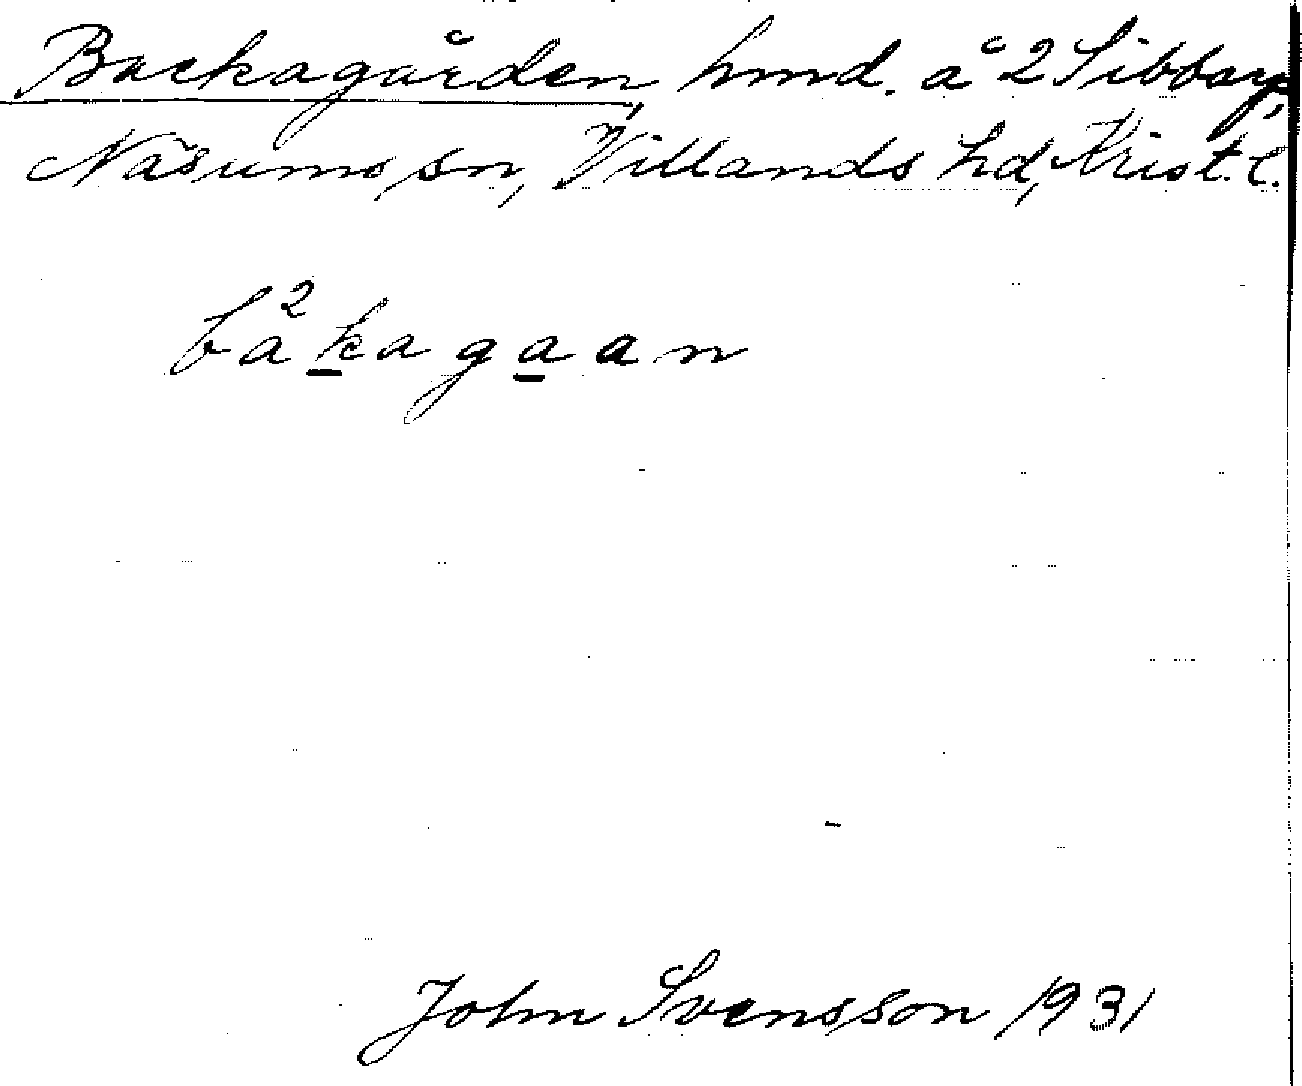 Backagården, hmd. å 2 Sibbarp,
Näsums sn, Villands hd, Krist. l.
bå²kagaan
John Svensson 1931